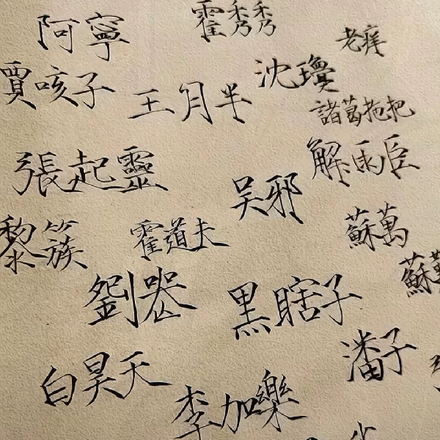 阿寧
霍秀秀
老痒
賈咳子
王月半
沈瓊
諸葛拖把
張起靈
吳邪
解雨臣
黎簇
霍道夫
蘇萬
蘇
劉喪
黑瞎子
白昊天
李加樂
潘子